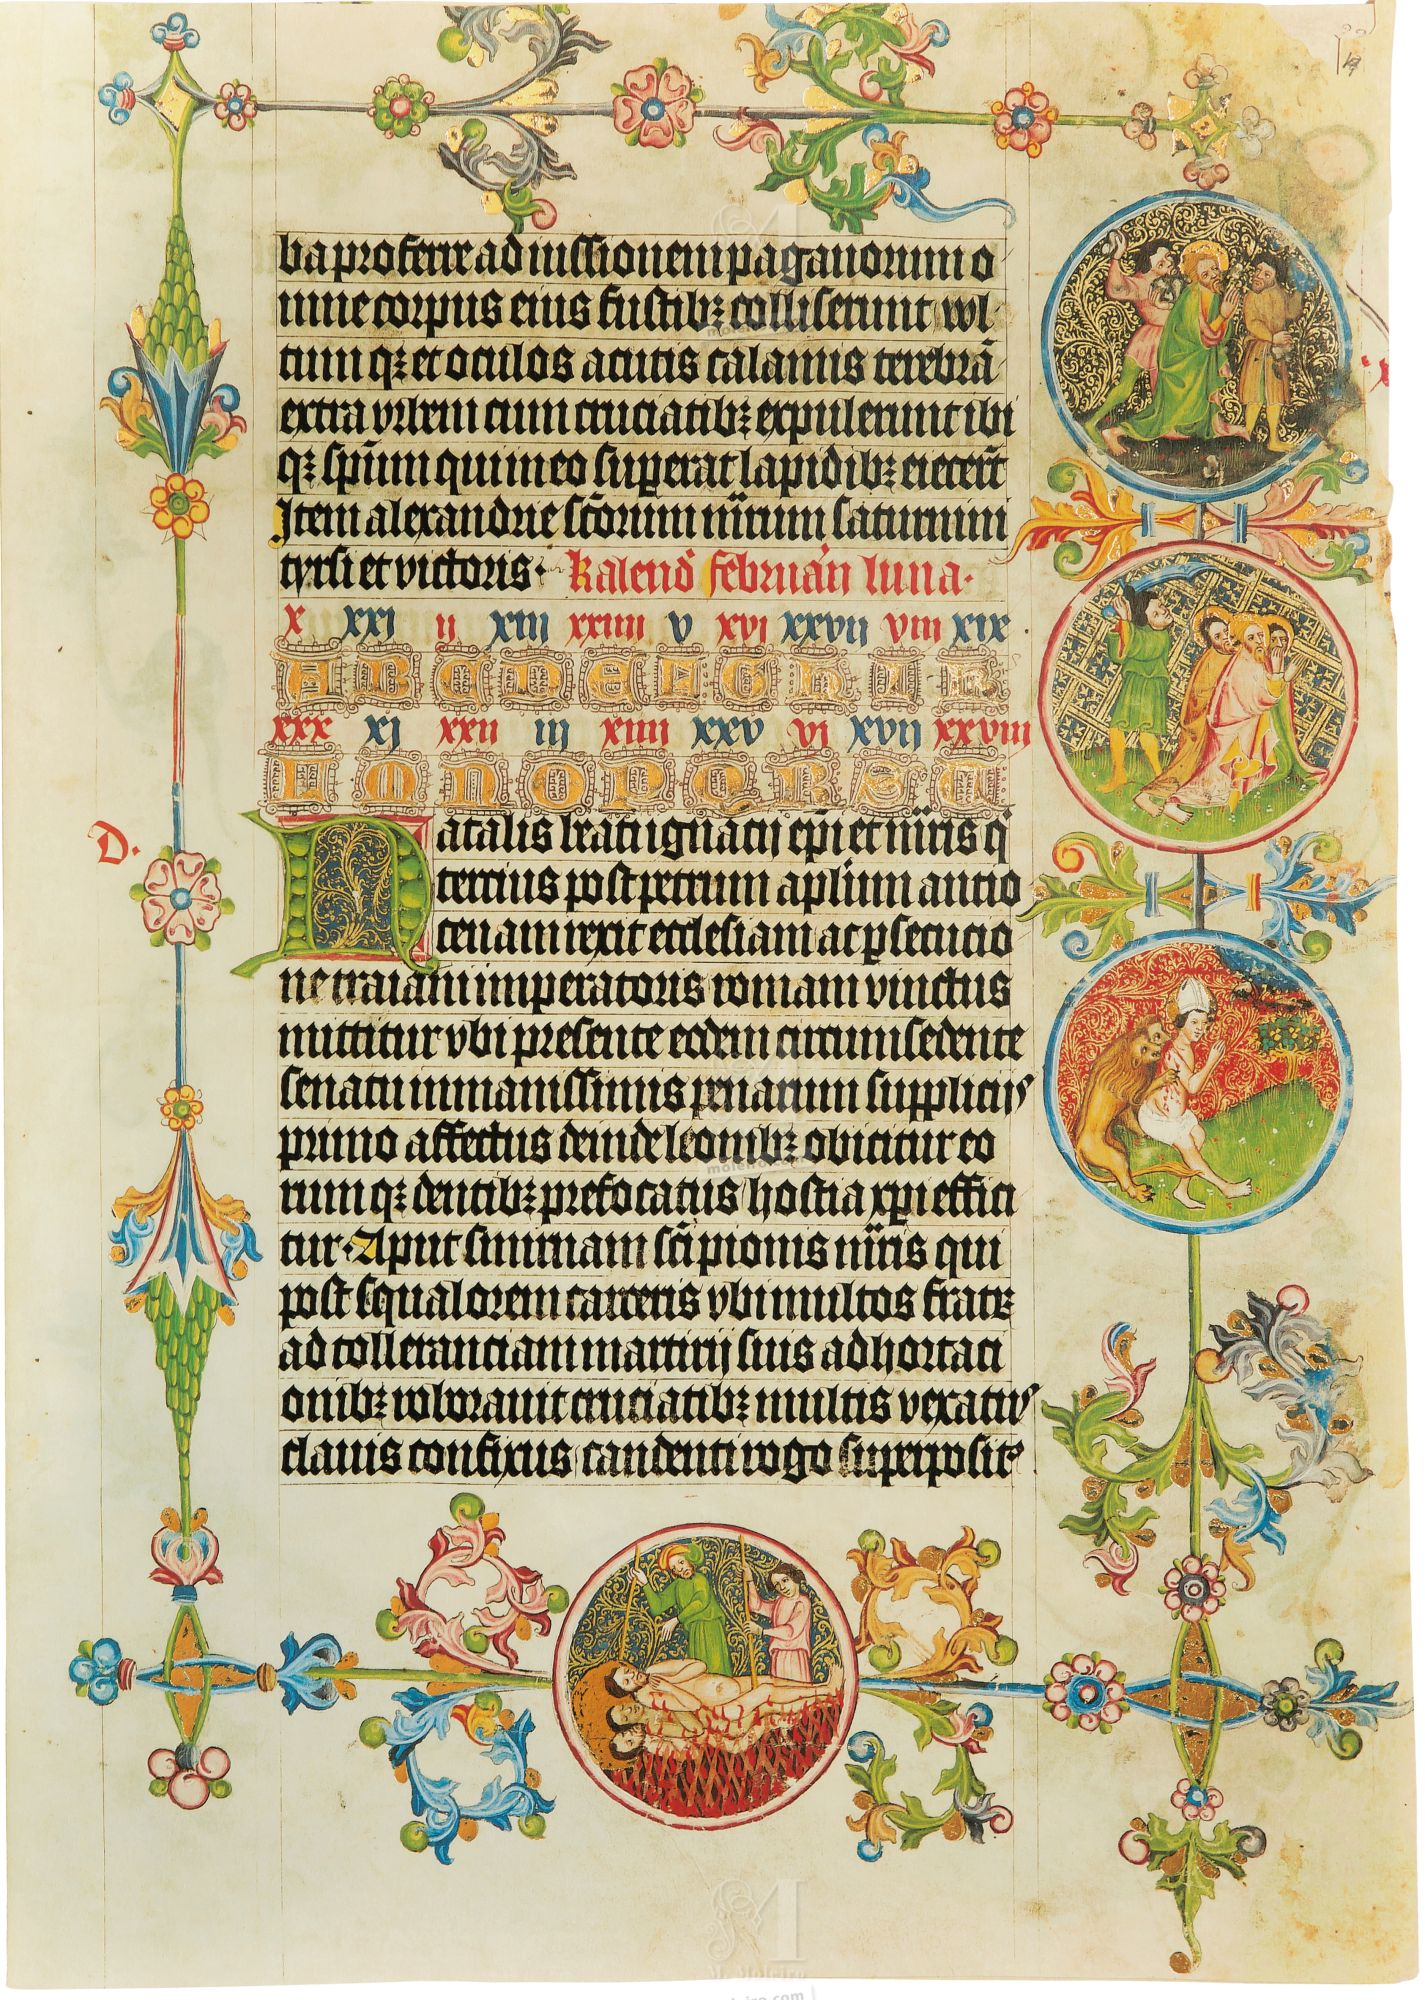 ba proferre ad iussionem paganorum o
mne corpus eius fustibꝫ colliserunt vvl
tum qꝫ et oculos acutis calamis terebrā
extra vrbem cum cruciatibꝫ expulerunt ibi
qꝫ spm̄ qui in eo superat lapidibꝫ eiecert̄
Item alexandrie sc̄orum mr̄um saturnini
tyrsi et victoris · Kalend̄ februar̄ luna ·
x xxi ij xiii xxiiii v xvi xxvii viii xix
A B C D E F G H I K
xxx xj xxii iij xiiii xxv vi xvii xxviii
M N O P Q R S T
D.
Natalis beati ignacij ep̄i et mr̄is qͥ
tercius post petrum aplūm antio
cenam rexit ecclesiam ac ꝑsecucio
ne traiani imperatoris romam vinctus
mittitur vbi presente eodem circumsedente
senatu inmanissimis penarum supplicijs
primo affectus deinde leonibꝫ obicitur eo
rum qꝫ dentibꝫ prefocatus hostia xp̄i effici
tur · Aput smirnam sc̄i pionis mr̄is qui
post squalorem carceris vbi multos fratꝝ
ad tolleranciam martirij suis adhortaci
onibꝫ roborauit cruciatibꝫ multis vexatuꝰ
clauis confixus candenti rogo superpositꝰ
M. Moleiro
moleiro.com